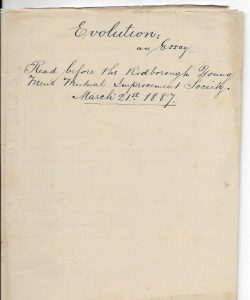 Evolution,
an Essay.
Read before the Rodborough Young
Men's Mutual Improvement Society.
March 21st 1887.